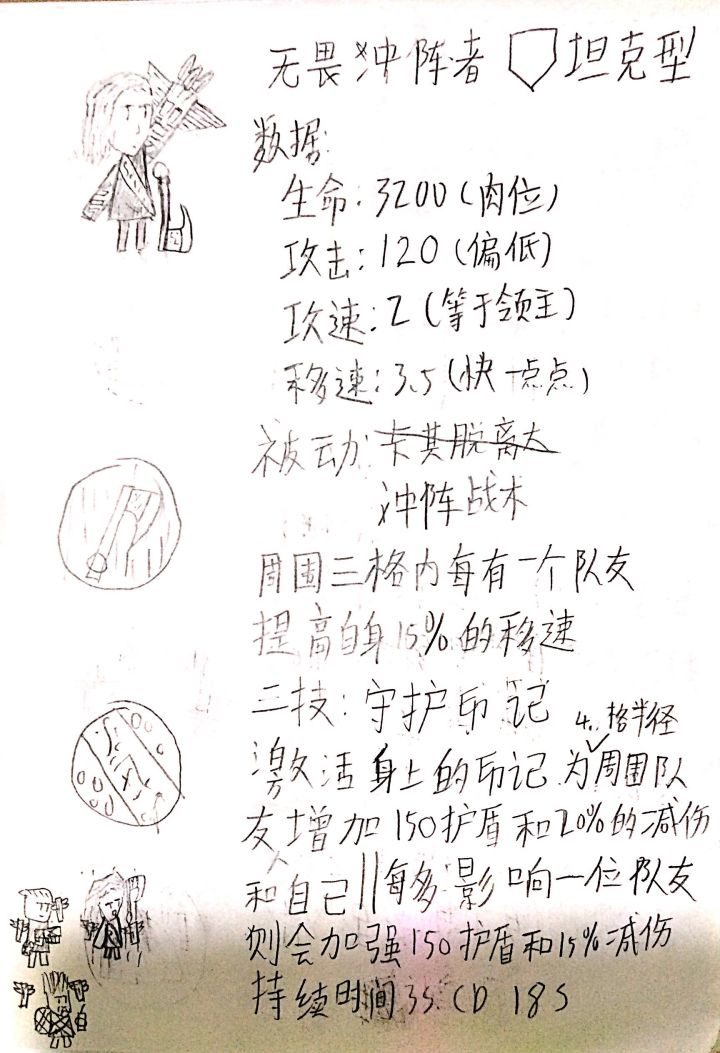 无畏冲阵者 坦克型
数据:
生命:3200(肉位)
攻击:120(偏低)
攻速:2(等于领主)
移速:3.5(快一点点)
被动:卡其脱离太
冲阵战术
周围三格内每有一个队友
提高自身15%的移速
三技:守护印记
4.格半径
激活身上的印记为周围队
友增加150护盾和20%的减伤
和自己||每多影响一位队友
则会加强150护盾和15%减伤
持续时间3S.CD 18S